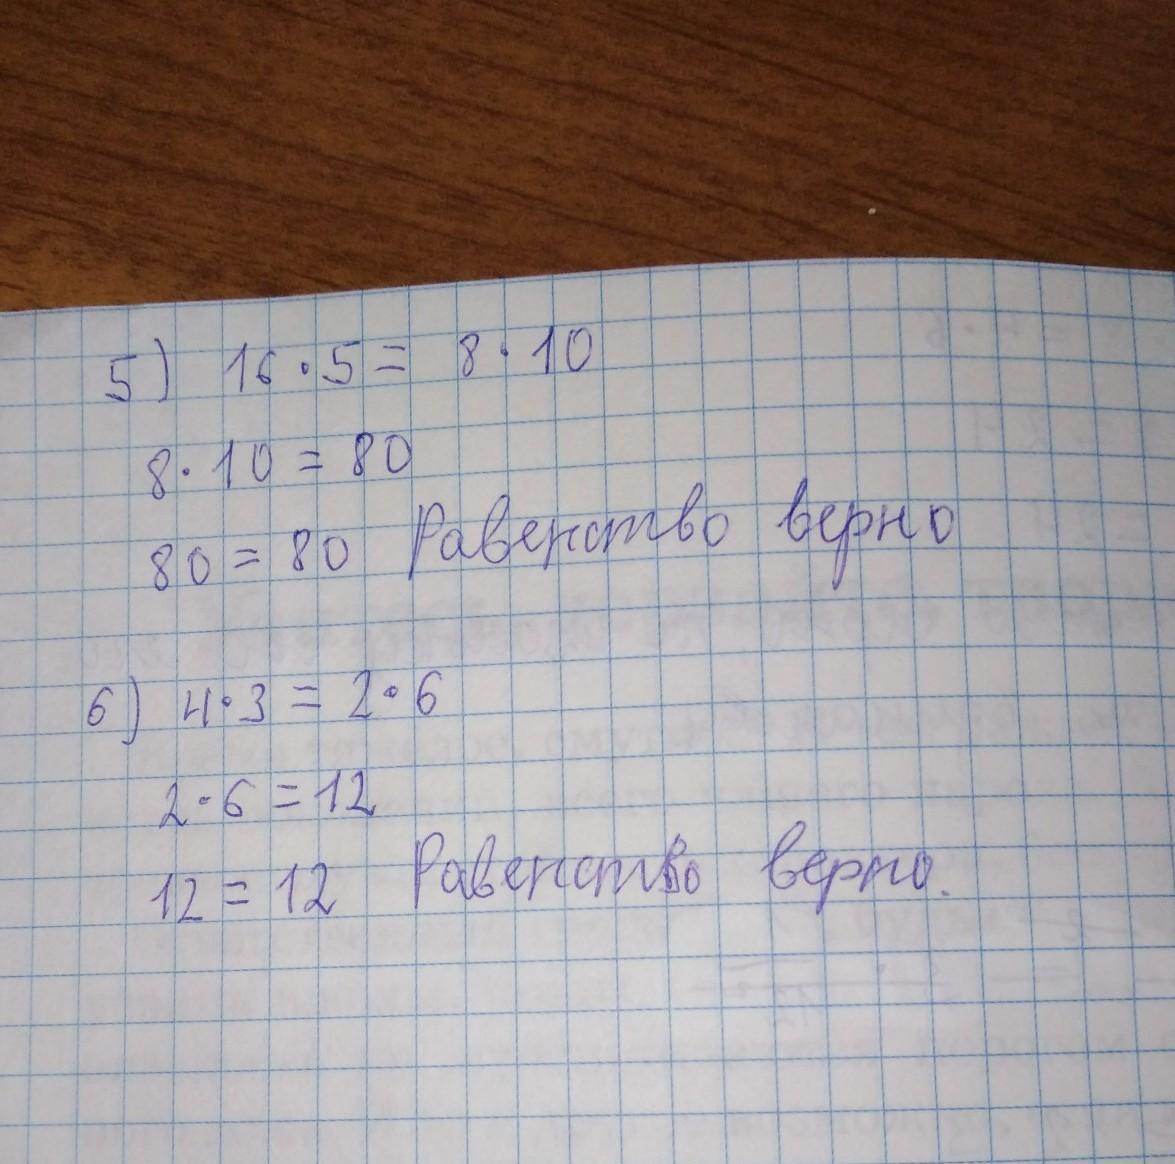 5) 16 · 5 = 8 · 10
8 · 10 = 80
80 = 80 Равенство верно
6) 4 · 3 = 2 · 6
2 · 6 = 12
12 = 12 Равенство верно.